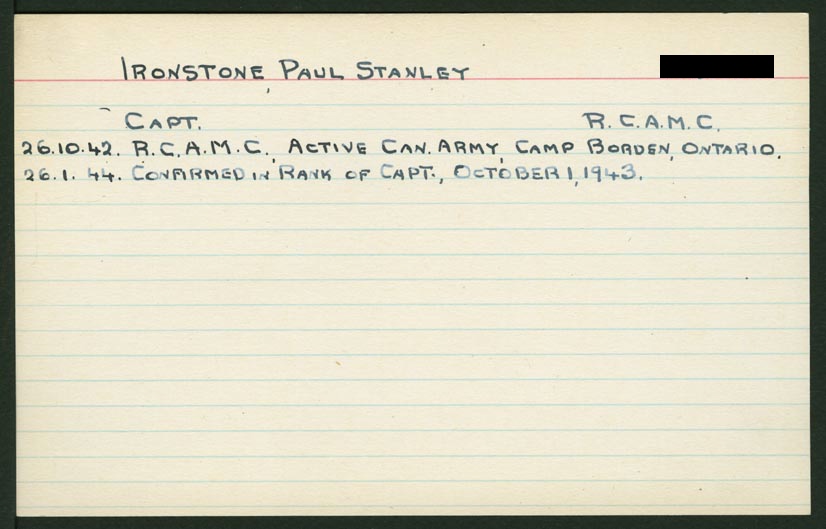 IRONSTONE, PAUL STANLEY
CAPT. R.C.A.M.C.
26.10.42. R.C.A.M.C., ACTIVE CAN. ARMY, CAMP BORDEN, ONTARIO.
26.1.44. CONFIRMED IN RANK OF CAPT., OCTOBER 1, 1943.